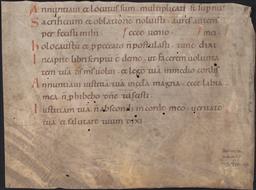 Annuntiaui et locutus sum multiplicati st sup nu
Sacrificium et oblatione noluisti aures autem
perfecisti mihi ecce uenio
holocaustu et p peccato n postulasti tunc dixi
In capite libri scriptu e de me ut facerem uolunta
tem tua ds ms uolui et lege tua in medio cordis
Annuntiaui iustitia tua in eccla magna ecce labia
mea n phibebo dne tu scisti
Iustitiam tua n abscondi in corde meo ueritate
tua et salutare tuum dixi